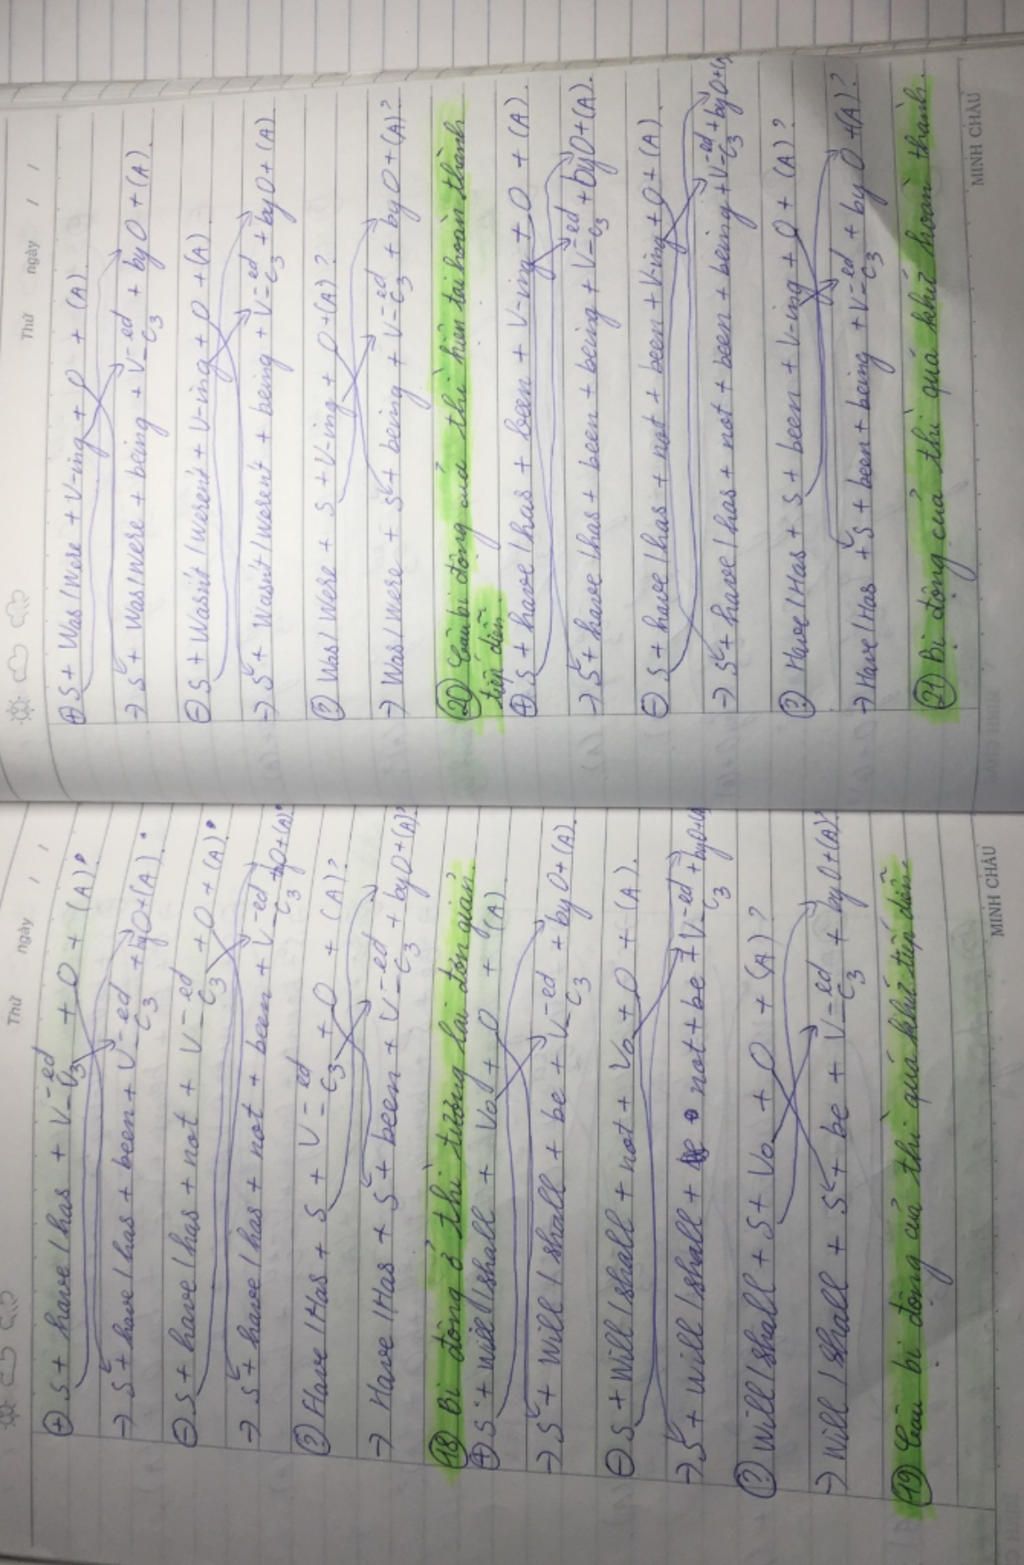 Thứ ngày / /
⊕ S + have / has + V-ed/C3 + O + (A).
→ S + have / has + been + V-ed/C3 + by O + (A).
⊖ S + have / has + not + V-ed/C3 + O + (A).
→ S + have / has + not + been + V-ed/C3 + by O + (A)
? Have / Has + S + V-ed/C3 + O + (A)?
→ Have / Has + S + been + V-ed/C3 + by O + (A)?
18 Bị động ở thì tương lai đơn giản.
⊕ S + will / shall + Vo + O + (A)
→ S + will / shall + be + V-ed/C3 + by O + (A)
⊖ S + will / shall + not + Vo + O + (A).
→ S + will / shall + not + be + V-ed/C3 + by O + (A)
? Will / shall + S + Vo + O + (A)?
→ Will / shall + S + be + V-ed/C3 + by O + (A)?
19 Câu bị động của thì quá khứ tiếp diễn.
MINH CHÂU
Thứ ngày / /
⊕ S + Was / Were + V-ing + O + (A).
→ S + Was / were + being + V-ed/C3 + by O + (A).
⊖ S + Wasn't / weren't + V-ing + O + (A)
→ S + Wasn't / weren't + being + V-ed/C3 + by O + (A)
? Was / Were + S + V-ing + O + (A)?
→ Was / were + S + being + V-ed/C3 + by O + (A)?
20 Câu bị động của thì hiện tại hoàn thành
tiếp diễn.
⊕ S + have / has + been + V-ing + O + (A).
→ S + have / has + been + being + V-ed/C3 + by O + (A).
⊖ S + have / has + not + been + V-ing + O + (A)
→ S + have / has + not + been + being + V-ed/C3 + by O + (A)
? Have / Has + S + been + V-ing + O + (A)?
→ Have / Has + S + been + being + V-ed/C3 + by O + (A)?
21 Bị động của thì quá khứ hoàn thành.
MINH CHÂU